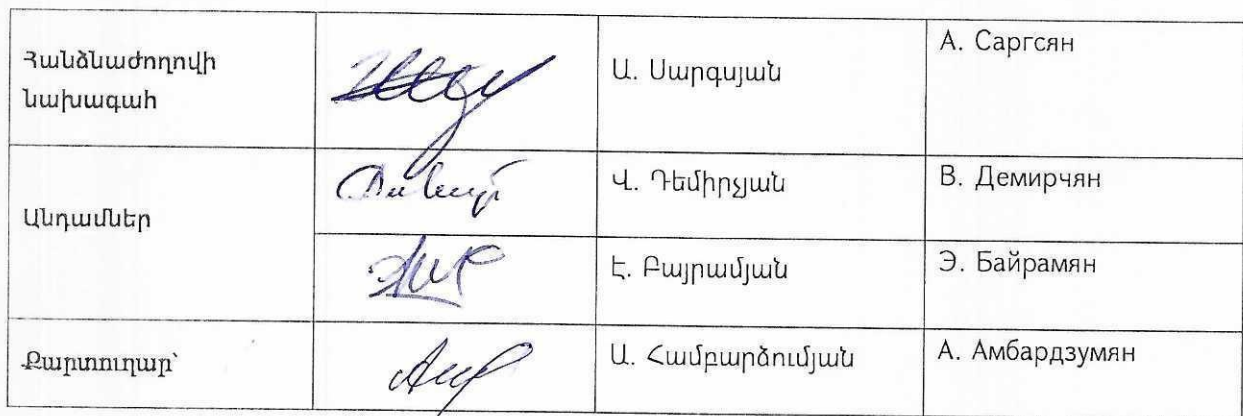 Հանձնաժողովի
նախագահ
Ա. Սարգսյան
А. Саргсян
Անդամներ
Վ. Դեմիրչյան
В. Демирчян
Է. Բայրամյան
Э. Байрамян
Քարտուղար՝
Ա. Համբարձումյան
А. Амбардзумян